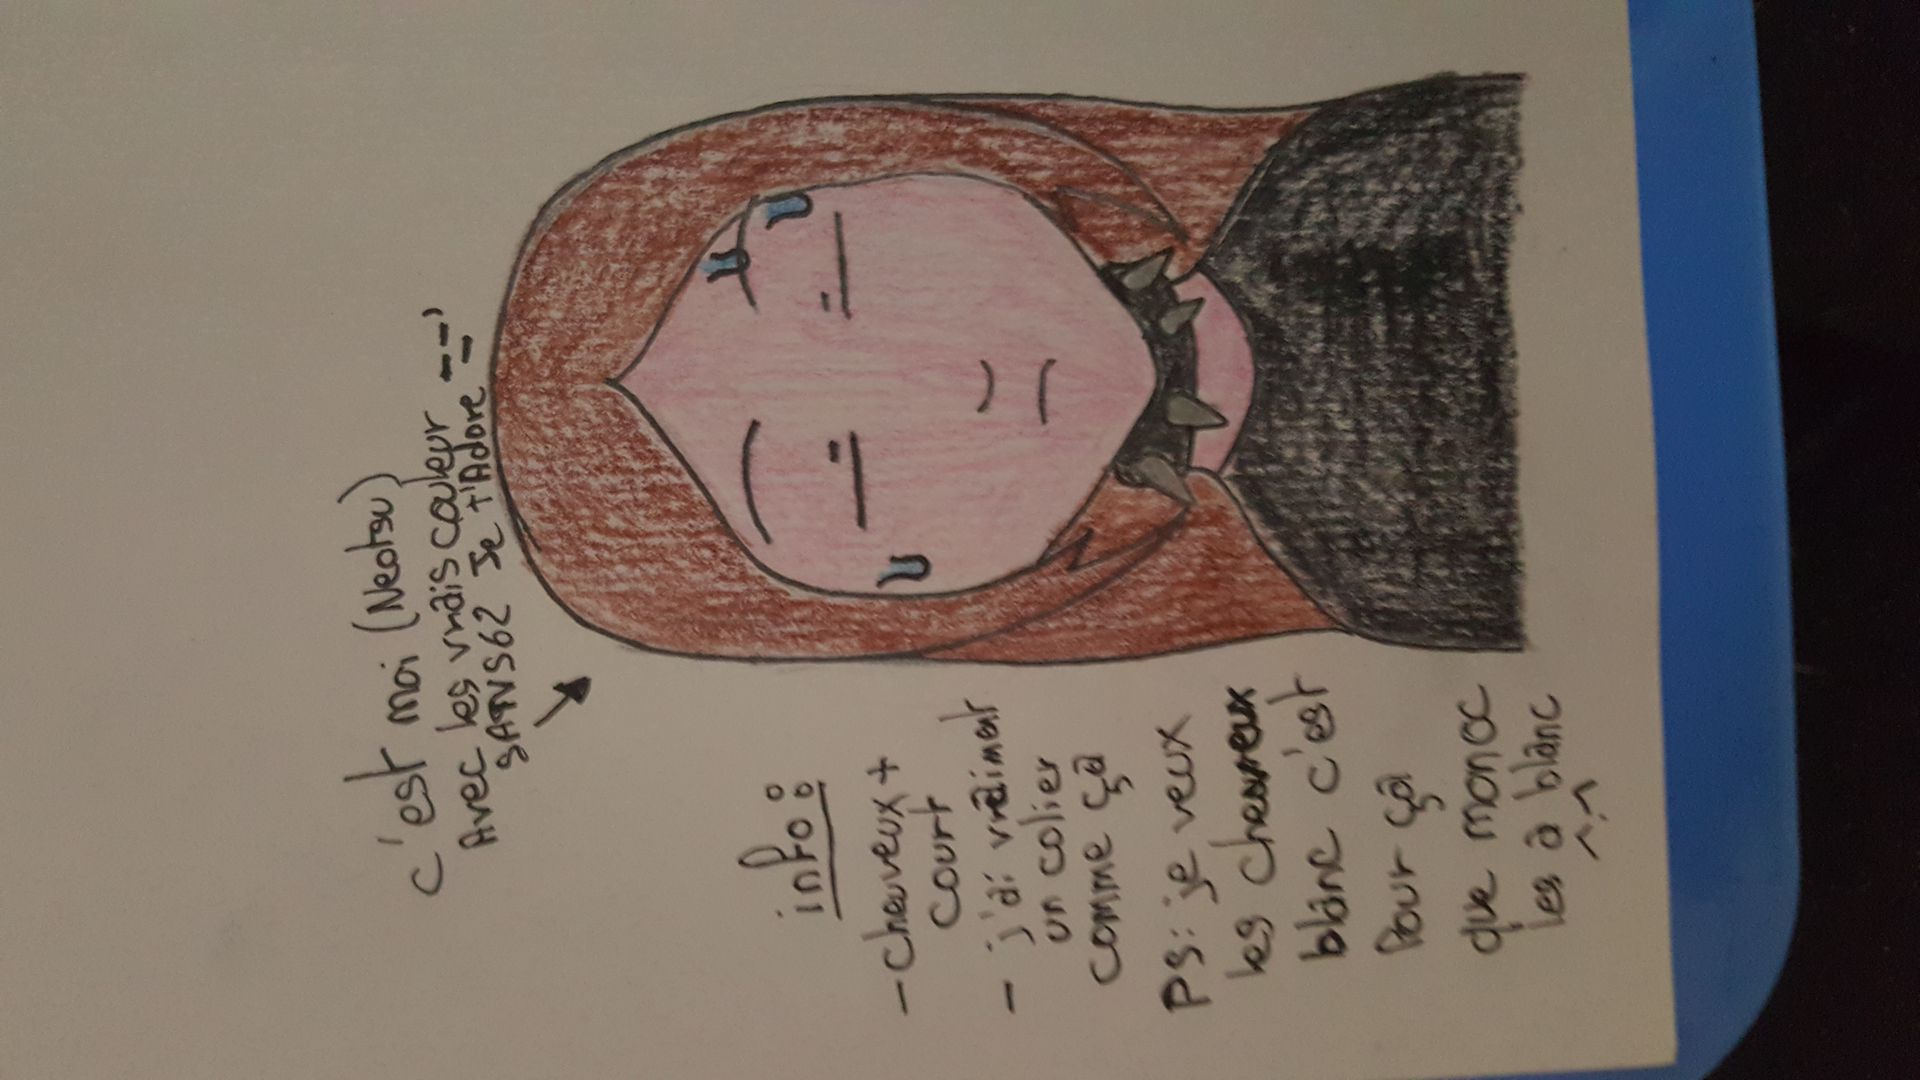 c'est moi (Neotsu)
Avec les vrais couleur --'
SANS62 Je t'Adore =
info :
- cheuveux +
court
- j'ai vraiment
un colier
comme ça
PS: je veux
les cheuveux
blanc c'est
Pour ça
que monoc
les a blanc
^.^